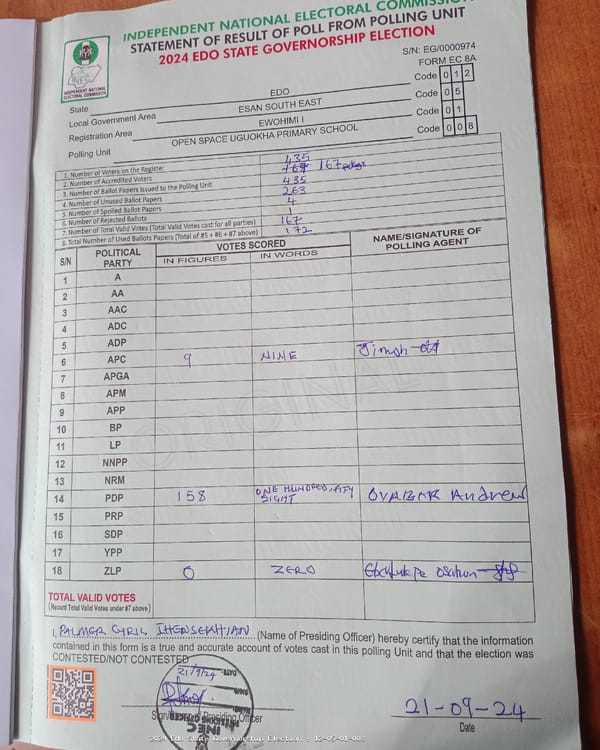 INDEPENDENT NATIONAL ELECTORAL COMMISSION
STATEMENT OF RESULT OF POLL FROM POLLING UNIT
2024 EDO STATE GOVERNORSHIP ELECTION
S/N: EG/0000974
FORM EC 8A
INDEPENDENT NATIONAL ELECTORAL COMMISSION
State EDO Code 0 1 2
Local Government Area ESAN SOUTH EAST Code 0 5
Registration Area EWOHIMI I Code 0 1
Polling Unit OPEN SPACE UGUOKHA PRIMARY SCHOOL Code 0 0 8
1. Number of Voters on the Register 435
2. Number of Accredited Voters 167 167
3. Number of Ballot Papers Issued to the Polling Unit 435
4. Number of Unused Ballot Papers 263
5. Number of Spoiled Ballot Papers 4
6. Number of Rejected Ballots 1
7. Number of Total Valid Votes (Total Valid Votes cast for all parties) 167
8. Total Number of Used Ballots Papers (Total of #5 + #6 + #7 above) 172
S/N POLITICAL PARTY VOTES SCORED NAME/SIGNATURE OF POLLING AGENT
IN FIGURES IN WORDS
1 A
2 AA
3 AAC
4 ADC
5 ADP
6 APC 9 NINE
7 APGA
8 APM
9 APP
10 BP
11 LP
12 NNPP
13 NRM
14 PDP 158 ONE HUNDRED, FITY EIGHT OVABOR Andrew
15 PRP
16 SDP
17 YPP
18 ZLP 0 ZERO
ORIGINAL
TOTAL VALID VOTES
(Record Total Valid Votes under #7 above)
I, PALMER CYRIL (Name of Presiding Officer) hereby certify that the information
contained in this form is a true and accurate account of votes cast in this polling Unit and that the election was
CONTESTED/NOT CONTESTED
21/9/24
DATE
SIGN
Sign/ of Presiding Officer
PRESIDING OFFICER
INEC
21-09-24
Date
2024 Edo State Governorship Election - 12-05-01-008